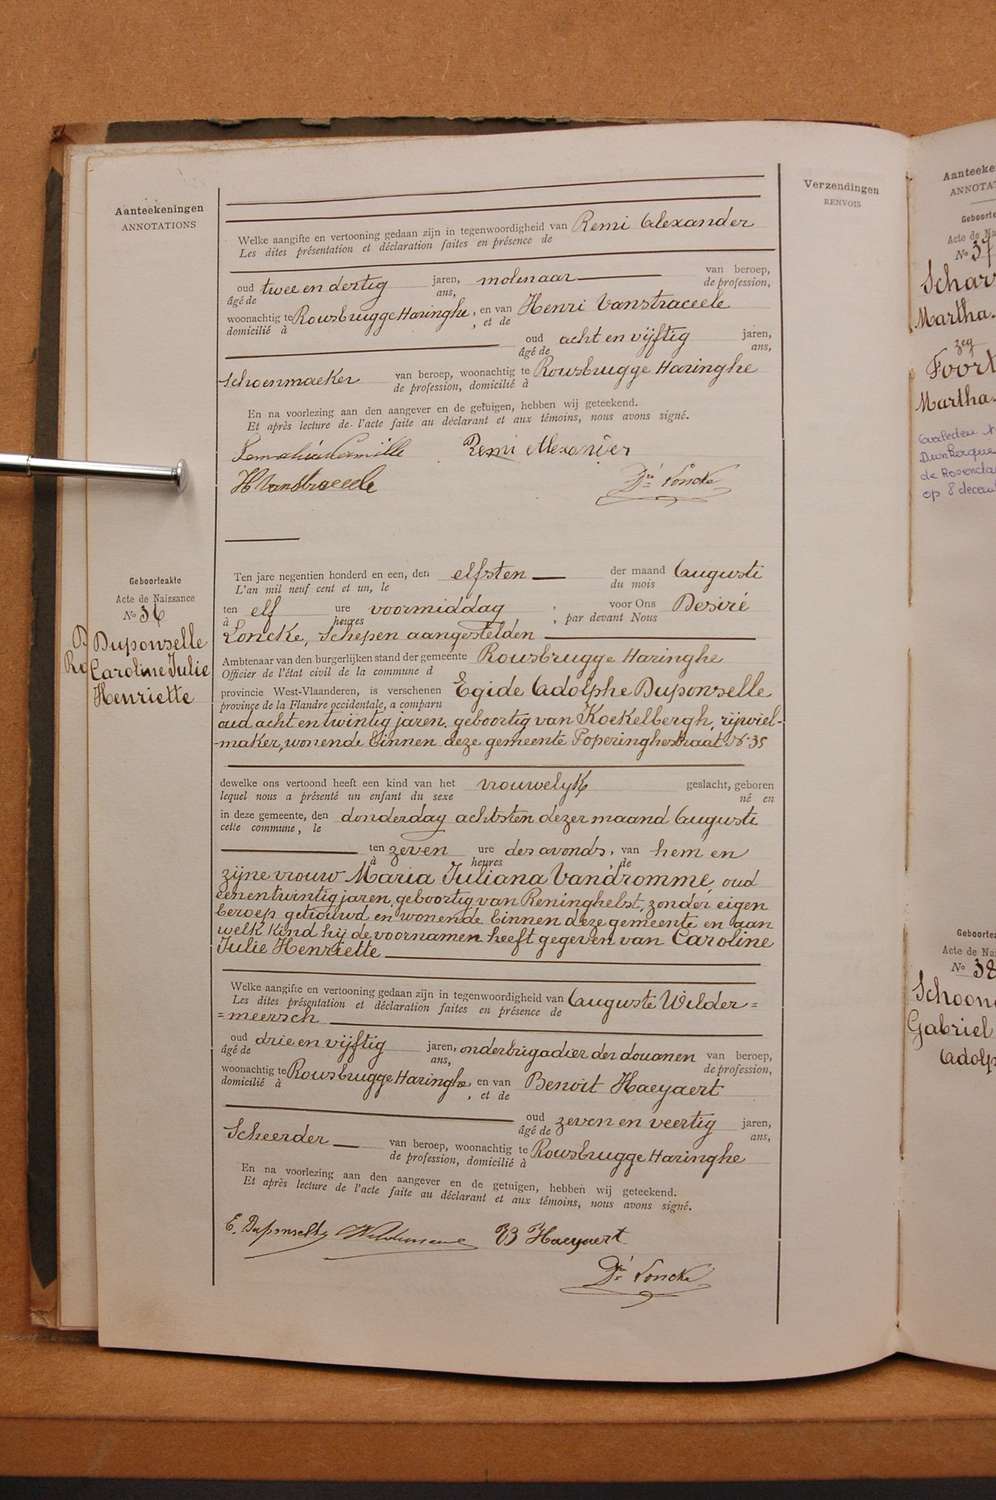 Aanteekeningen
ANNOTATIONS
Verzendingen
RENVOIS
Welke aangifte en vertooning gedaan zijn in tegenwoordigheid van Remi Alexander
Les dites présentation et déclaration faites en présence de
oud twee en dertig jaren, molenaar van beroep,
âgé de ans, de profession,
woonachtig te Rousbrugge Haringhe, en van Henri Vanstraceele
domicilié à , et de
oud acht en vijftig jaren,
âgé de ans,
schoenmaeker van beroep, woonachtig te Rousbrugge Haringhe
de profession, domicilié à
En na voorlezing aan den aangever en de getuigen, hebben wij geteekend.
Et après lecture de l'acte faite au déclarant et aux témoins, nous avons signé.
Remi Alexander
H Vanstraceele Dré Loncke
Geboorteakte
Acte de Naissance
No 36
Duponselle
Caroline Julie
Henriette
Ten jare negentien honderd en een, den elfsten der maand Augusti
L'an mil neuf cent et un, le du mois
ten elf ure voormiddag ; voor Ons Desiré
à heures , par devant Nous
Loncke, schepen aangestelden
Ambtenaar van den burgerlijken stand der gemeente Rousbrugge Haringhe
Officier de l'état civil de la commune d
provincie West-Vlaanderen, is verschenen Egide Adolphe Duponselle
province de la Flandre occidentale, a comparu
oud acht en twintig jaren, geboortig van Koekelbergh, rijwiel-
-maker, wonende binnen deze gemeente Poperinghestraat No 35
dewelke ons vertoond heeft een kind van het vrouwelyk geslacht, geboren
lequel nous a présenté un enfant du sexe né en
in deze gemeente, den donderdag achtsten dezer maand Augusti
cette commune, le
ten zeven ure des avonds, van hem en
à heures de
zijne vrouw Maria Juliana Vandromme, oud
eenentwintig jaren, geboortig van Reninghelst, zonder eigen
beroep, getrouwd en wonende binnen deze gemeente en aan
welk kind hij de voornamen heeft gegeven van Caroline
Julie Henriette
Welke aangifte en vertooning gedaan zijn in tegenwoordigheid van Auguste Wilder=
Les dites présentation et déclaration faites en présence de
=meersch
oud drie en vijftig jaren, onderbrigadier der douanen van beroep,
âgé de ans, de profession,
woonachtig te Rousbrugge Haringhe, en van Benoit Haeyaert
domicilié à , et de
oud zeven en veertig jaren,
âgé de ans,
Scheerder van beroep, woonachtig te Rousbrugge Haringhe
de profession, domicilié à
En na voorlezing aan den aangever en de getuigen, hebben wij geteekend.
Et après lecture de l'acte faite au déclarant et aux témoins, nous avons signé.
E. Duponselle B Haeyaert
Dré Loncke
Aanteeke
ANNOTAT
Geboorte
Acte de Nai
No 37
Schar
Martha
zeg
Foort
Martha
Overleden
Dunkerque
de Rosenda
op 8 decem
Geboorte
Acte de Nai
No 38
Schoon
Gabriel
Adolp